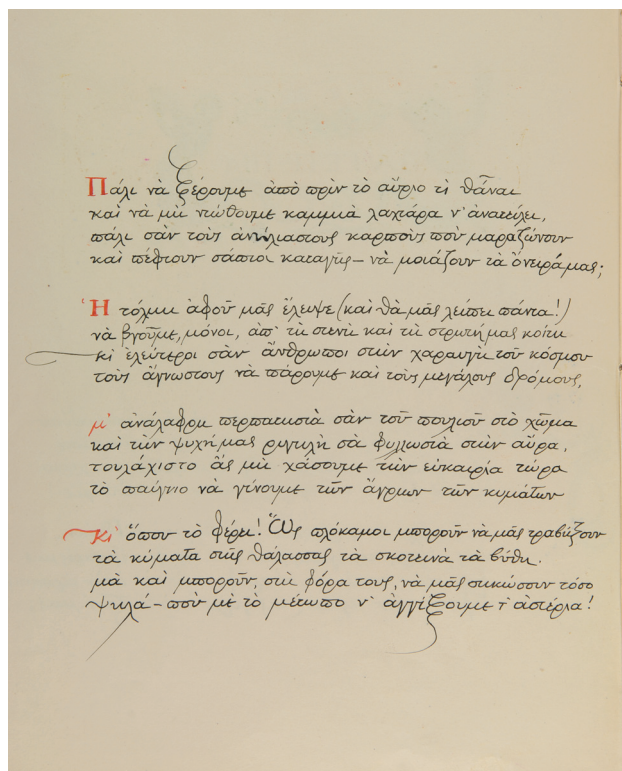 Πάλι νὰ ξέρουμε ἀπὸ πρὶν τὸ αὔριο τί θἆναι
καὶ νὰ μὴ νιώθουμε καμμιὰ λαχτάρα ν' ἀνατέλει,
πάλι σὰν τοὺς ἀνήλιαστους καρποὺς ποὺ μαραζώνουν
καὶ πέφτουν σάπιοι καταγῆς — νὰ μοιάζουν τὰ ὄνειρά μας;
Ἡ τόλμη ἀφοῦ μᾶς ἔλειψε (καὶ θὰ μᾶς λείπει πάντα!)
νὰ βγοῦμε, μόνοι, ἀπ' τὴ στενὴ καὶ τὴ στρωτή μας κοίτη
κι ἐλεύτεροι σὰν ἄνθρωποι στὴν χαραυγὴ τοῦ κόσμου
τοὺς ἄγνωστους νὰ πάρουμε καὶ τοὺς μεγάλους δρόμους,
μ' ἀνάλαφρη περπατησιὰ σὰν τοῦ πουλιοῦ στὸ χῶμα
καὶ τὴν ψυχή μας ριγηλὴ σὰ φυλλωσιὰ στὴν αὔρα,
τουλάχιστο ἂς μὴ χάσουμε τὴν εὐκαιρία τώρα
τὸ παίγνιο νὰ γίνουμε τῶν ἄγριων τῶν κυμάτων
κι ὅπου τὸ φέρει! Ὡς πλόκαμοι μποροῦν νὰ μᾶς τραβήξουν
τὰ κύματα στῆς θάλασσας τὰ σκοτεινὰ τὰ βύθη.
μὰ καὶ μποροῦν, στὴ φόρα τους, νὰ μᾶς σηκώσουν τόσο
ψηλά — ποὺ μὲ τὸ μέτωπο ν' ἀγγίξουμε τ' ἀστέρια!